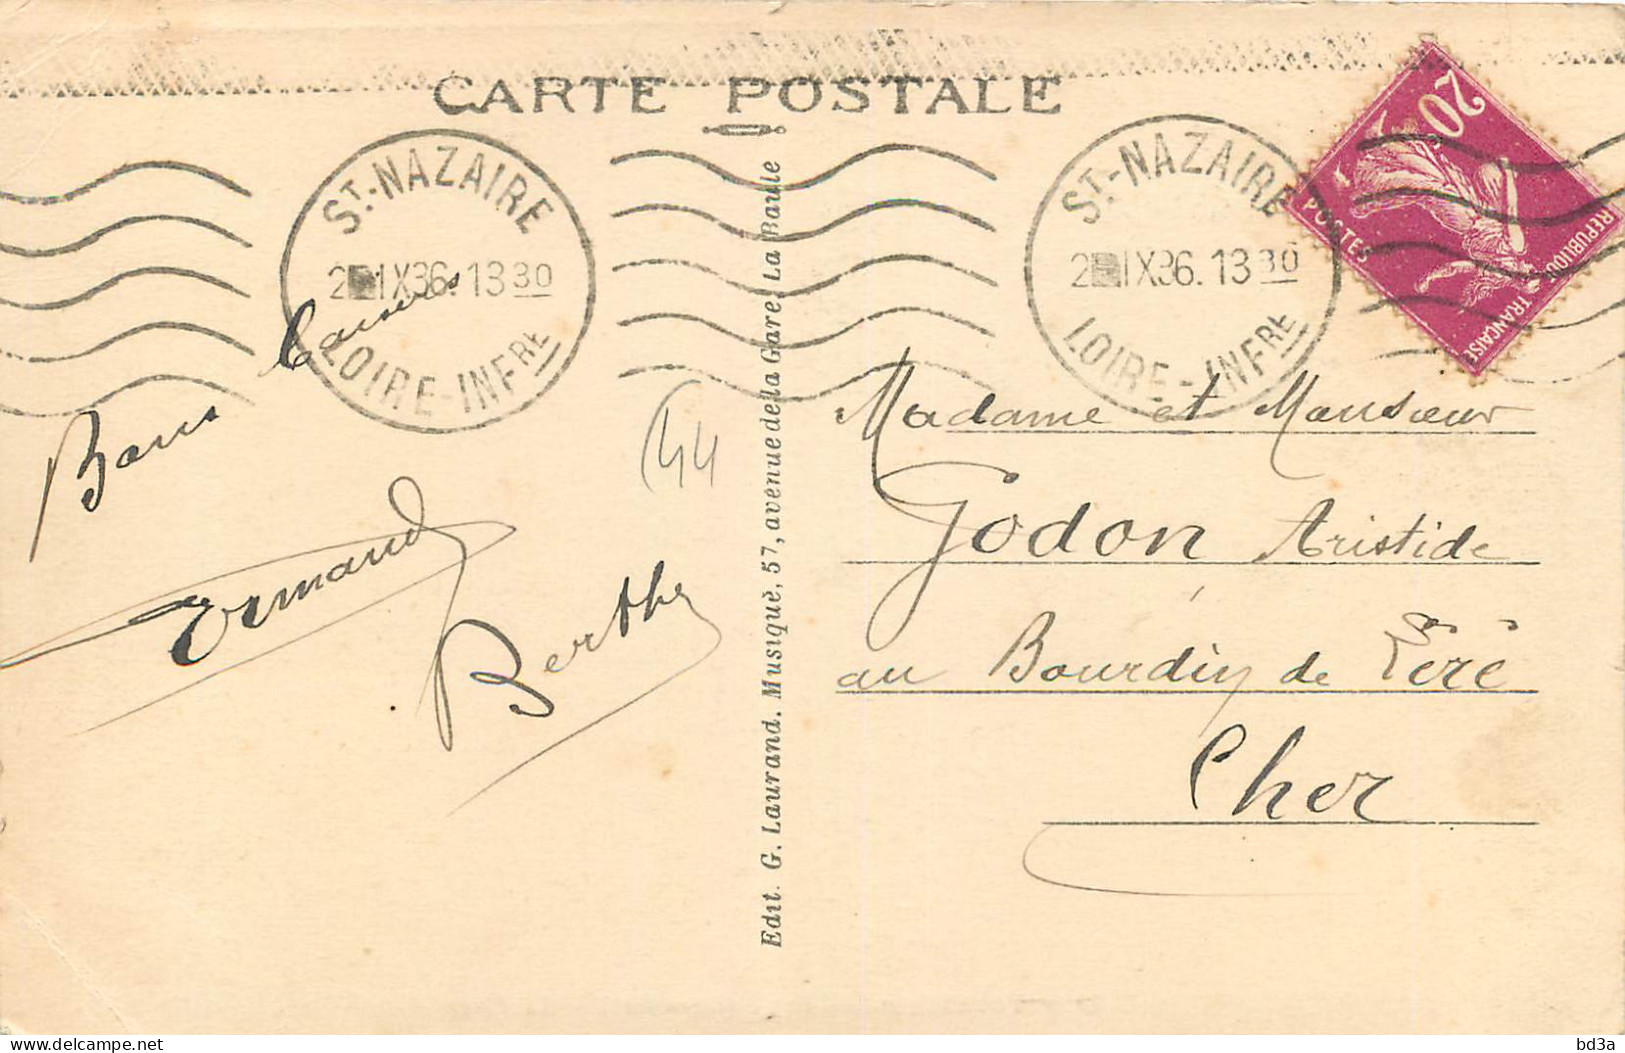 CARTE POSTALE
ST-NAZAIRE
2 IX36. 13 30
LOIRE-INFRE
ST-NAZAIRE
2 IX36. 13 30
LOIRE-INFRE
20
POSTES
REPUBLIQUE FRANÇAISE
Bons Baisers
Armand
Berthe
(44
Edit. G. Laurand. Musique, 57, avenue de la Gare, La Baule
Madame et Monsieur
Godon Aristide
au Bourdin de Léré
Cher
bd3a